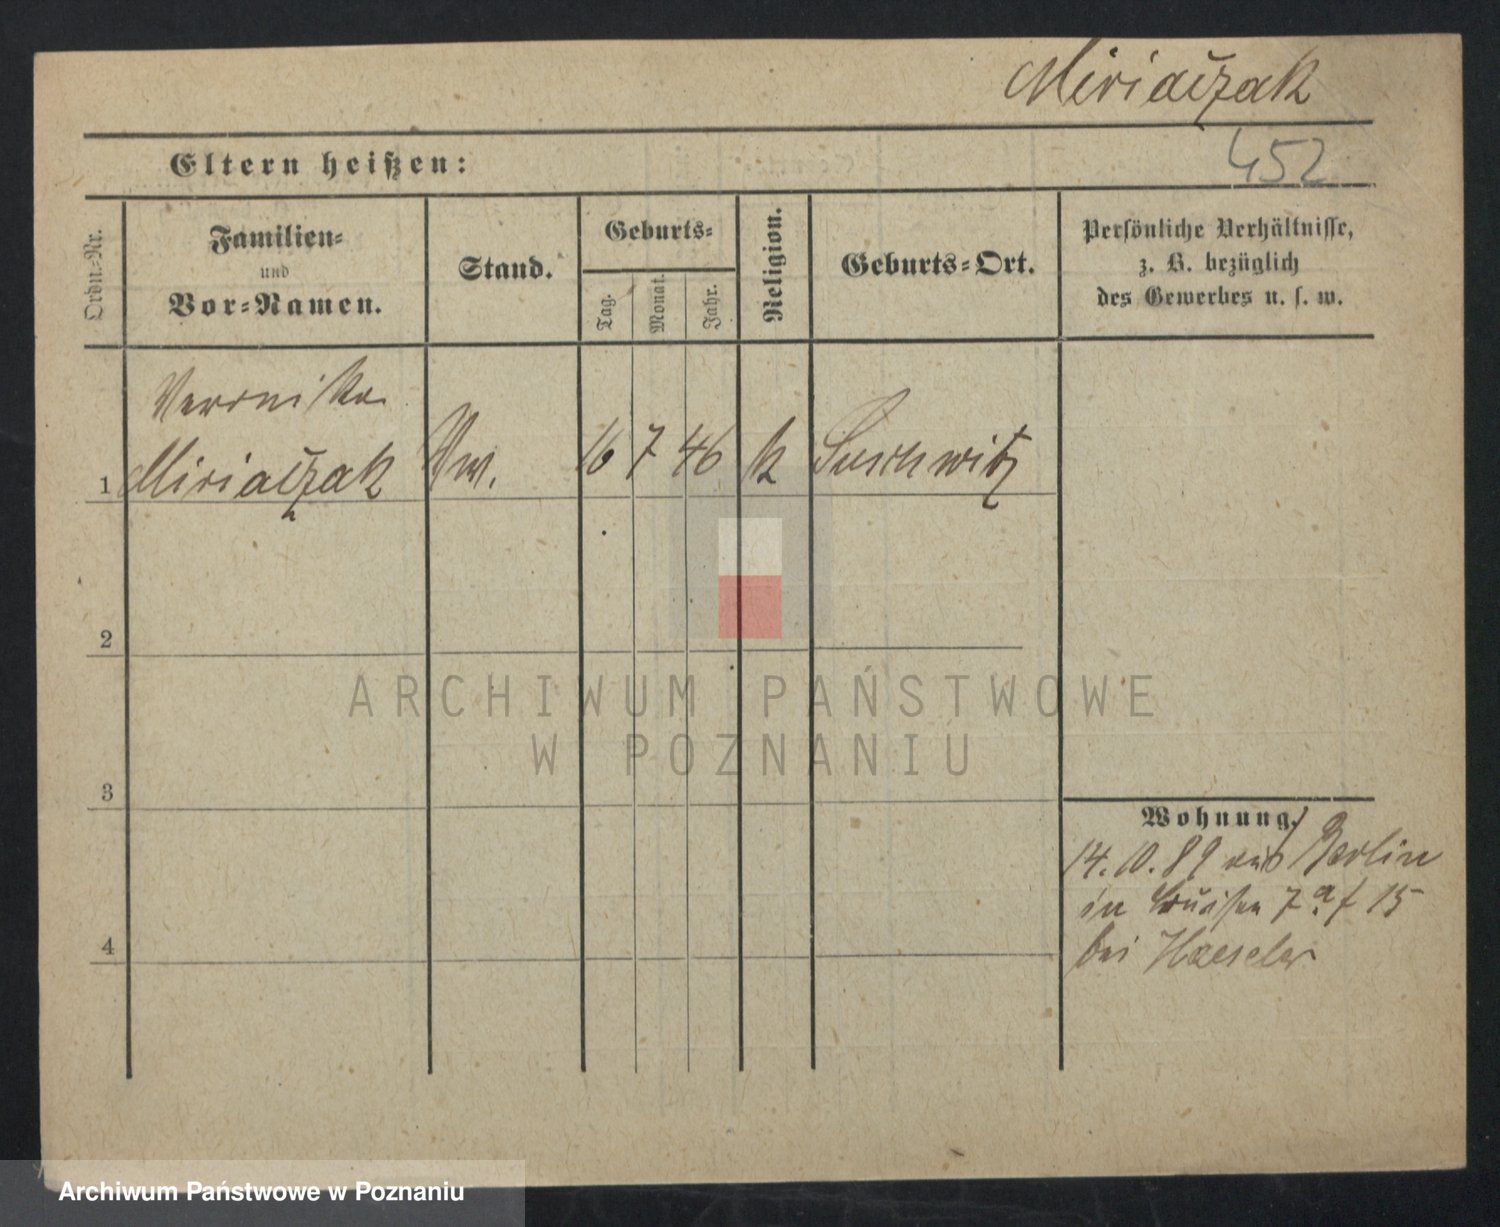 Miriaczak
452
Eltern heißen:
Ordn.=Nr.
Familien=
und
Vor=Namen.
Stand.
Geburts=
Tag.
Monat.
Jahr.
Religion.
Geburts=Ort.
Persönliche Verhältnisse,
z. B. bezüglich
des Gewerbes u. s. w.
Veronika
1 Miriaczak Ww. 16 7 46 k
2
3
4
ARCHIWUM PAŃSTWOWE
W POZNANIU
Wohnung.
14.10.89 aus Berlin
in 7a 15
bei Haeseler
Archiwum Państwowe w Poznaniu